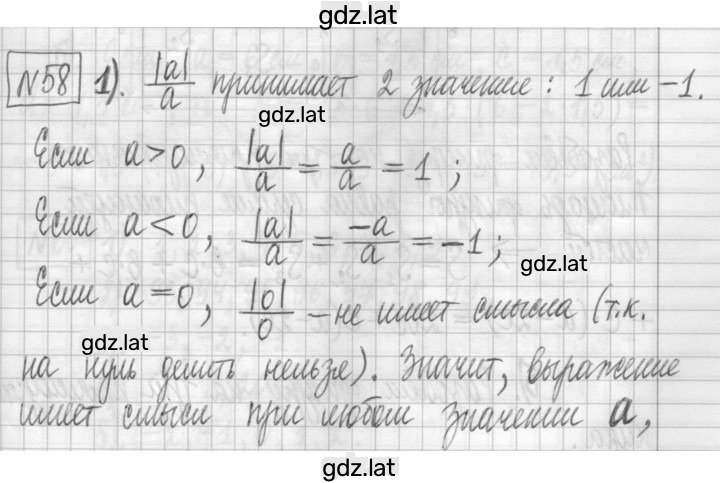 gdz.lat
№58 1). |a|/a принимает 2 значение: 1 или -1.
gdz.lat
Если a>0, |a|/a = a/a = 1;
Если a<0, |a|/a = -a/a = -1;
gdz.lat
Если a=0, |0|/0 - не имеет смысла (т.к.
gdz.lat
на нуль делить нельзя). Значит, выражение
имеет смысл при любом значении a,
gdz.lat